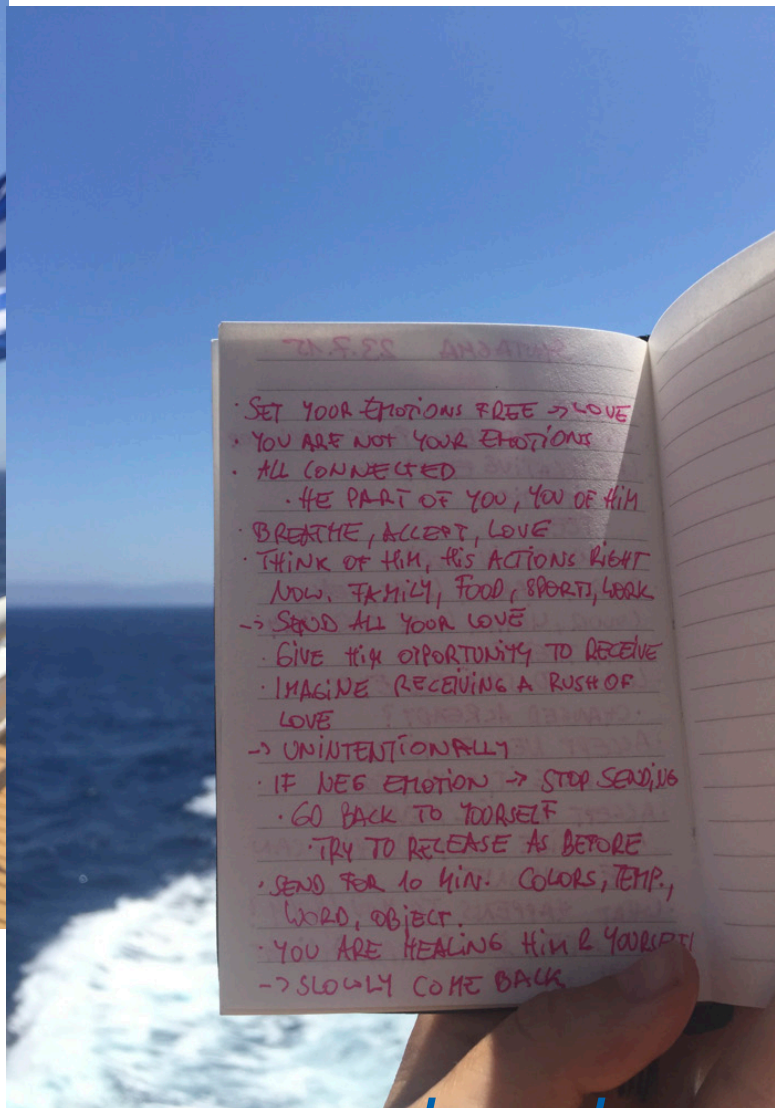 · SET YOUR EMOTIONS FREE -> LOVE
· YOU ARE NOT YOUR EMOTIONS
· ALL CONNECTED
· HE PART OF YOU, YOU OF HIM
· BREATHE, ACCEPT, LOVE
· THINK OF HIM, HIS ACTIONS RIGHT
NOW. FAMILY, FOOD, SPORTS, WORK
-> SEND ALL YOUR LOVE
· GIVE HIM OPPORTUNITY TO RECEIVE
· IMAGINE RECEIVING A RUSH OF
LOVE
-> UNINTENTIONALLY
· IF NEG EMOTION -> STOP SENDING
· GO BACK TO YOURSELF
· TRY TO RELEASE AS BEFORE
· SEND FOR 10 MIN. COLORS, TEMP.,
WORD, OBJECT.
· YOU ARE HEALING HIM & YOURSELF!
-> SLOWLY COME BACK